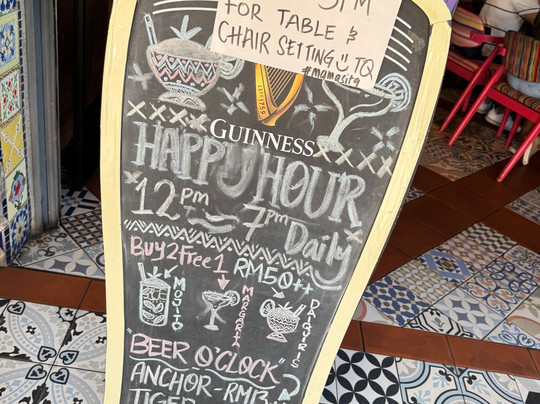 FOR TABLE &
CHAIR SETTING TQ
#mamasita
EST 1759
GUINNESS
HAPPY HOUR
12pm ~ 7pm Daily
Buy2Free1 RM50++
MOJITO
MARGARITA
DAIQUIRIS
"BEER O'CLOCK"
ANCHOR-RM13
TIGER